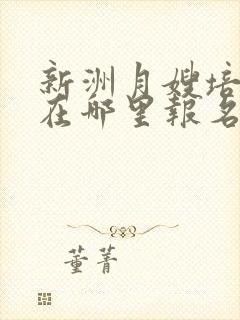 新洲月嫂培
在哪里報名
董菁